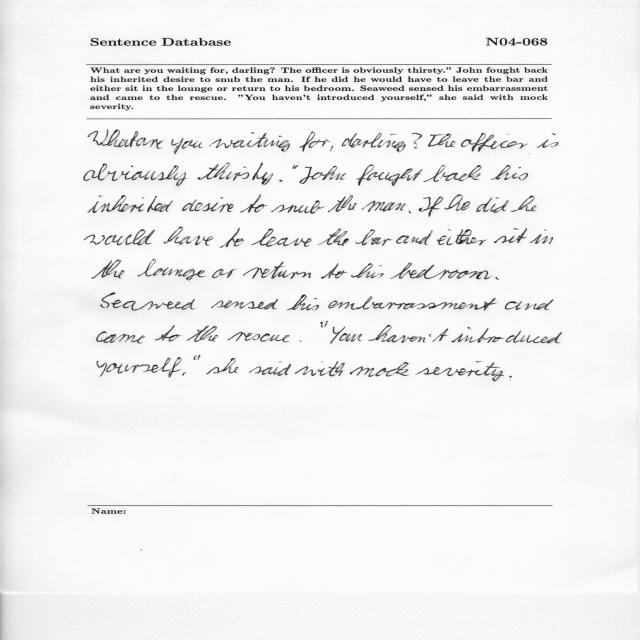 Sentence Database N04-068
What are you waiting for, darling? The officer is obviously thirsty." John fought back
his inherited desire to snub the man. If he did he would have to leave the bar and
either sit in the lounge or return to his bedroom. Seaweed sensed his embarrassment
and came to the rescue. "You haven't introduced yourself," she said with mock
severity.
What are you waiting for, darling? The officer is
obviously thirsty." John fought back his
inherited desire to snub the man. If he did he
would have to leave the bar and either sit in
the lounge or return to his bed room.
Seaweed sensed his embarrassment and
came to the rescue. "You haven't introduced
yourself," she said with mock severity.
Name: